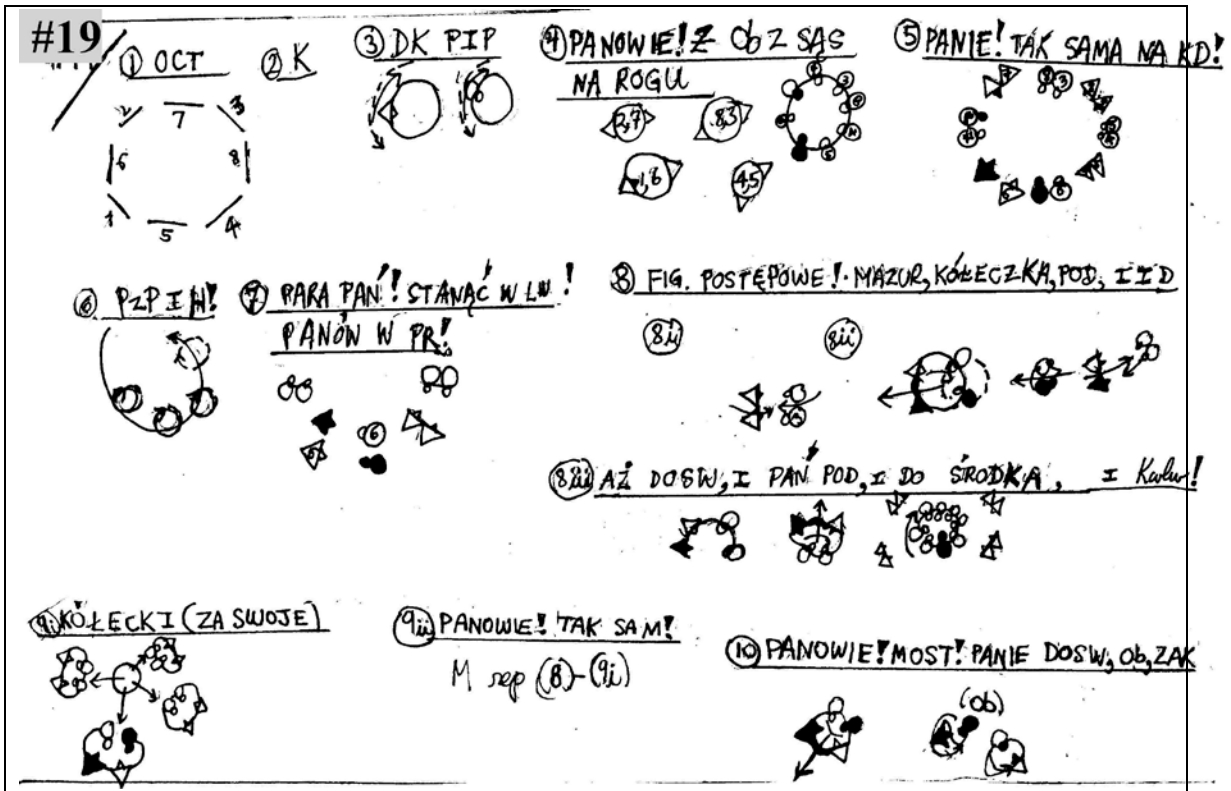 #19
① OCT
② K
2 7 3
6 8
1 5 4
③ DK PIP
④ PANOWIE! Z Ob Z SĄS
NA ROGU
2,7 8,3
1,6 4,5
⑤ PANIE! TAK SAMA NA KD!
⑥ PZP I H!
⑦ PARA PAŃ! STANĄĆ W LW!
PANÓW W PR!
6
⑧ FIG. POSTĘPOWE! MAZUR, KÓŁECZKA, POD, I I D
8ii
8ii
8iii AŻ DOSW, I PAŃ POD, I DO ŚRODKA, I Kolw!
9i KÓŁECKI (ZA SWOJE)
9ii PANOWIE! TAK SAM!
M rep (8)-(9i)
⑩ PANOWIE! MOST! PANIE DOSW, Ob, ZAK
(Ob)